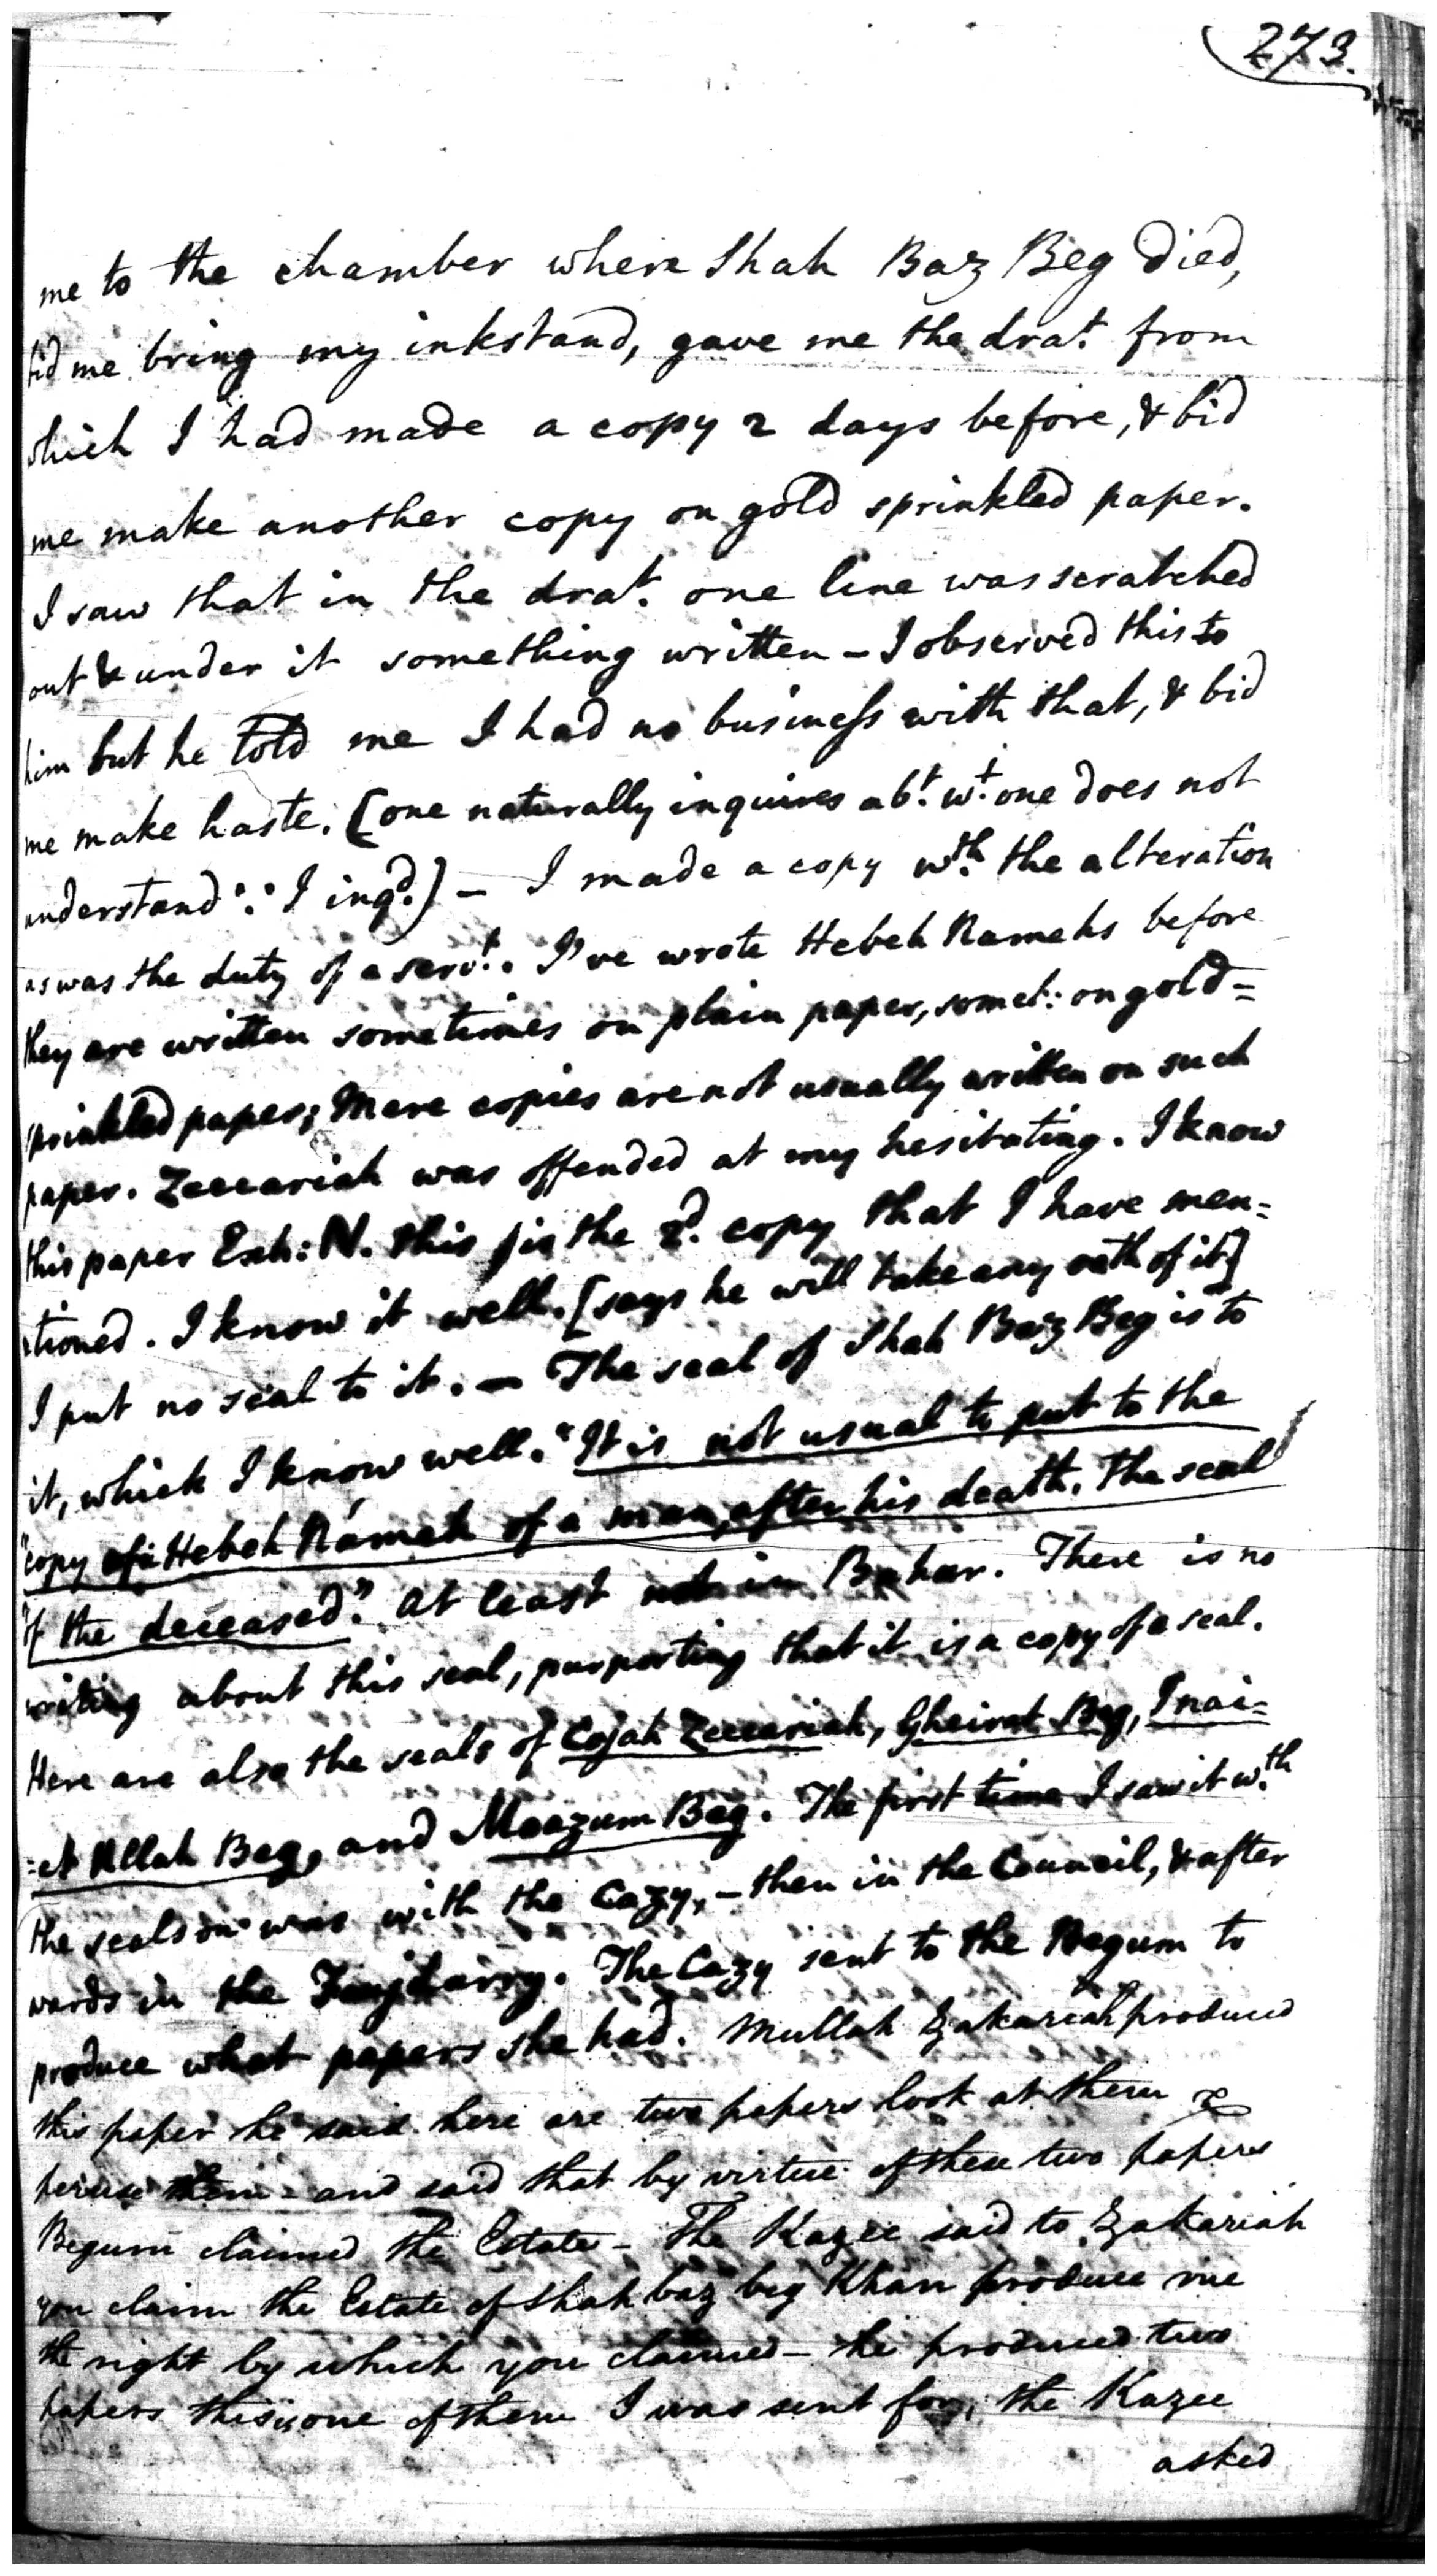 273.
me to the chamber where Shah Baz Beg died,
bid me bring my inkstand, gave me the drat. from
which I had made a copy 2 days before, & bid
me make another copy on gold sprinkled paper.
I saw that in the drat. one line was scratched
out & under it something written – I observed this to
him but he told me I had no business with that, & bid
me make haste. [one naturally inquires abt. wt. one does not
understand ∵ I inqd.] – I made a copy wth. the alteration
as was the duty of a servt.. I've wrote Hebeh Namehs before
they are written sometimes on plain paper, somet: on gold=
sprinkled paper; Mere copies are not usually written on such
paper. Zeccariah was offended at my hesitating. I know
this paper Exh: N. this is the 2d. copy that I have men=
tioned. I know it well. [says he will take any oath of it]
I put no seal to it. – The seal of Shah Baz Beg is to
it, which I know well. "It is not usual to put to the
"copy of a Hebeh Námeh of a man, after his death, the seal
"of the deceased." at least not in Bahar. There is no
writing about this seal, purporting that it is a copy of a seal.
Here are also the seals of Cojah Zeccariah, Gheirat Beg, Inai=
=et Ullah Beg, and Moazum Beg. The first time I saw it wth.
the seals on was with the Cazy, – then in the Council, & after
wards in the Foujdarry. The Cazy sent to the Begum to
produce what papers she had. Mullah Zakariah produced
this paper he said here are two papers look at them &
peruse them – and said that by virtue of these two papers
Begum claimed the Estate – The Kazee said to Zakariah
you claim the Estate of Shah baz beg Khan produce me
the right by which you claimed – he produced two
papers this is one of them I was sent for, the Kazee
asked